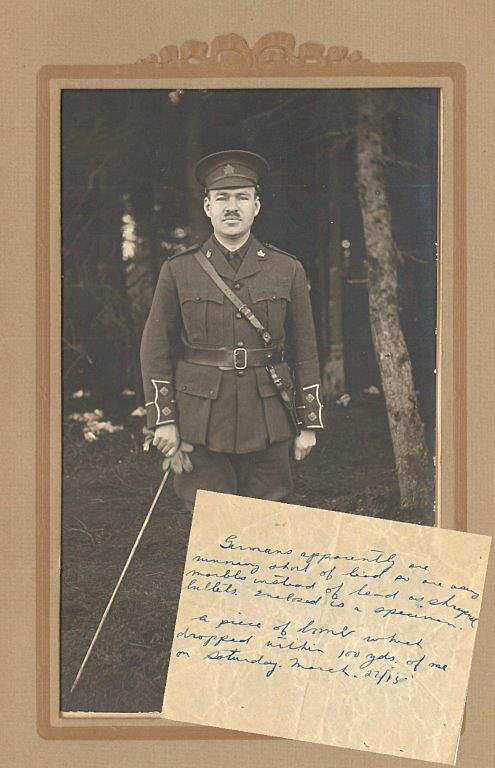 Germans apparently are
running short of lead so are using
marbles instead of lead as shrapnel
bullets. Enclosed is a specimen.
A piece of bomb which
dropped within 100 yds. of me
on Saturday. March. 27/15